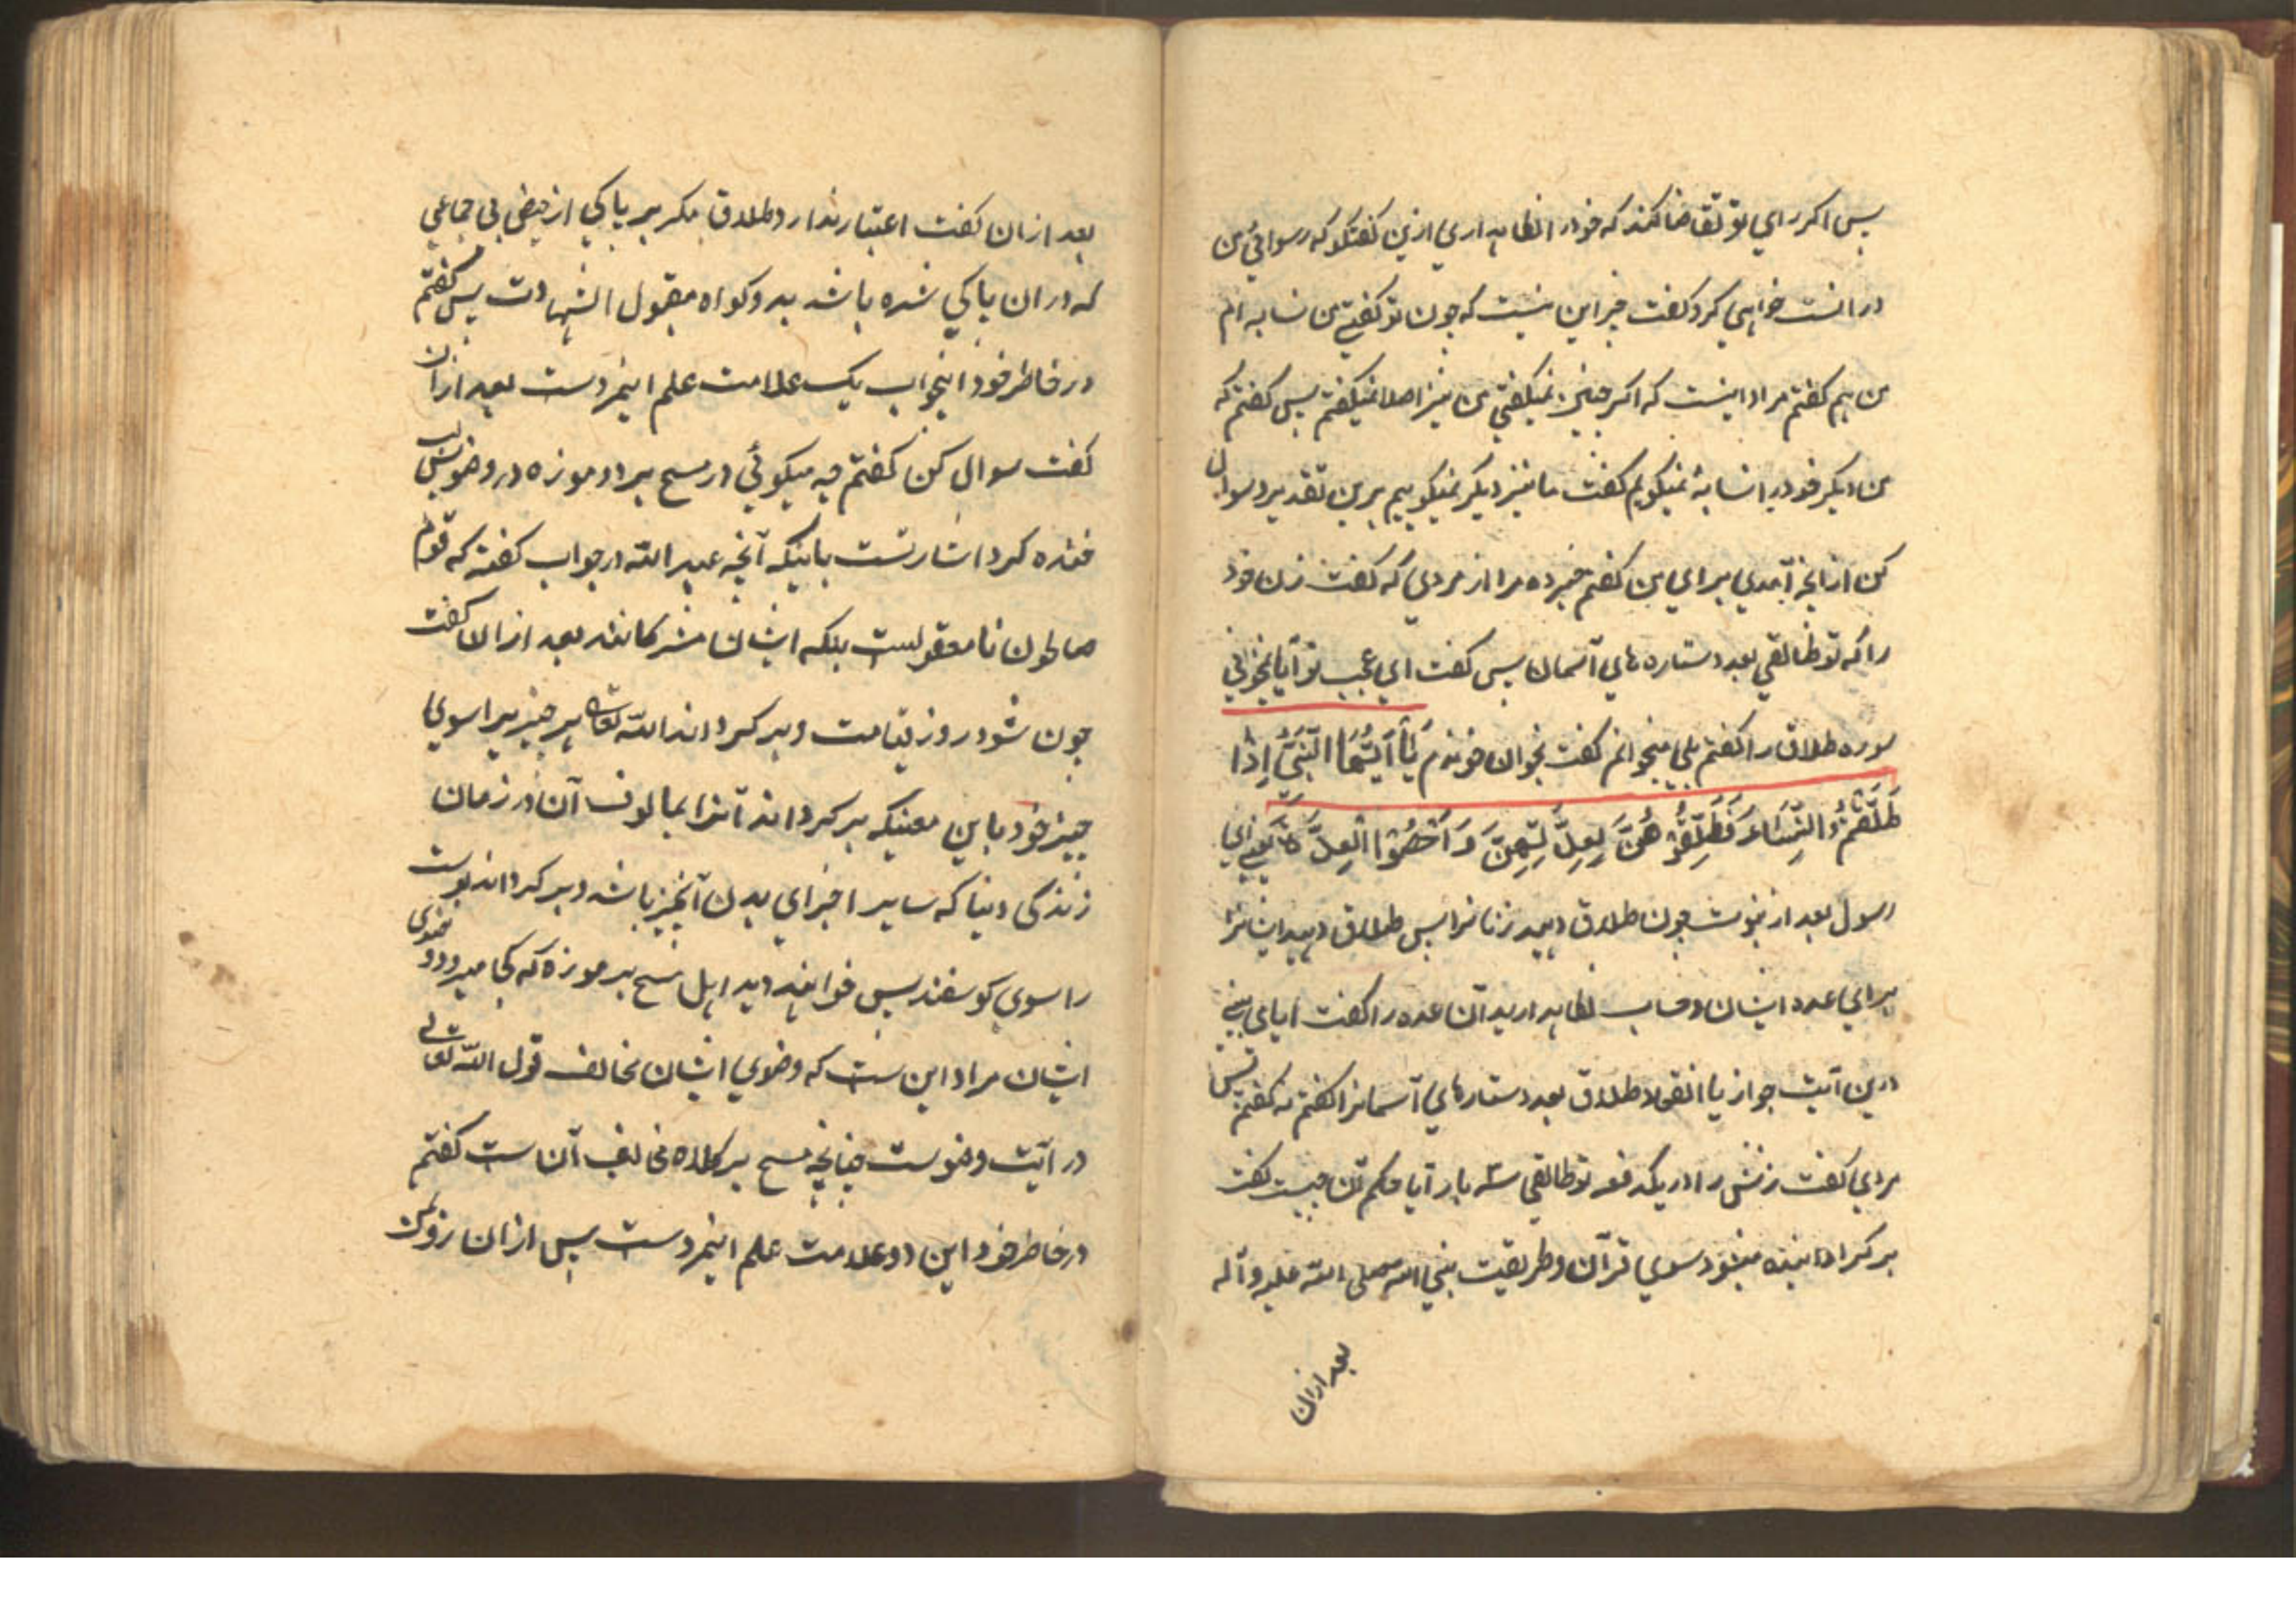 پس اکر رای تو تقاضا کند که خود را نکاه داری ازین کفتکو که رسوائی من
در انست خواهی کرد کفت جز این نیست که چون تو کفتی من نسابه ام
من هم کفتم مراد اینست که اکر چنین نمیکفتی من نیز اصلا نمیکفتم پس کفتم که
من دیکر خود را نسابه نمیکویم کفت ما نیز دیکر نمیکوییم برین تقدیر سوال
کن از انچه آمدی برای آن کفتم خبر ده مرا از مردی که کفت زن خود
را که تو طالقی بعدد ستاره های آسمان پس کفت ای عجب تو آیا نمیخوانی
سوره طلاق را کفتم بلی میخوانم کفت بخوان خوندم یَا أَیُّهَا النَّبِیُّ إِذَا
طَلَّقْتُمُ النِّسَاءَ فَطَلِّقُوْهُنَّ لِعِدَّتِهِنَّ وَ اَحْصُوْا الْعِدَّةَ یعنی ای
رسول بعد از نبوت چون طلاق دهید زنانرا پس طلاق دهید ایشانرا
برای عده ایشان و حساب نکاه دارید آن عده را کفت ایا می بینی
درین آیت جواز یا انقولا طلاق بعدد ستارهای آسمانرا کفتم نه کفتم پس
مردی کفت زنش را در یکدفعه تو طالقی سه بار آیا حکم آن چیست کفت
بر کردانیده میشود سوی قرآن و طریقت نبی الله صلی الله علیه و آله
بعد ازان
بعد ازان کفت اعتبار ندارد طلاق مکر بر پاکی از حیض بی جماعی
که در ان پاکی شده باشد بدو کواه مقبول الشهادت پس کفتم
در خاطر خود اینجواب یک علامت علم اینمردست بعد ازان
کفت سوال کن کفتم چه میکوئی در مسح بر دو موزه در وضو پس لب
خنده کرد اشارتست باینکه آنچه عبد الله در جواب کفته که قوم
صالحون نامعقولست بلکه ایشان مشرکانند بعد ازان کفت
چون شود روز قیامت و بر کرداند الله تعالی هر چیز را سوی
چیز خود باین معنیکه بر کرداند آنرا بمالوف آن در زمان
زندکی دنیا که سایر اجزای بدن آنچیز باشد و بر کرداند پوست
را سوی کوسفند پس خواهند دید اهل مسح بر موزه که کجا میرود وضوی
ایشان مراد این ست که وضوی ایشان مخالف قول الله تعالی
در آیت وضوست چنانچه مسح بر کلاه مخالف آن ست کفتم
در خاطر خود این دو علامت علم اینمردست پس ازان رو بمن